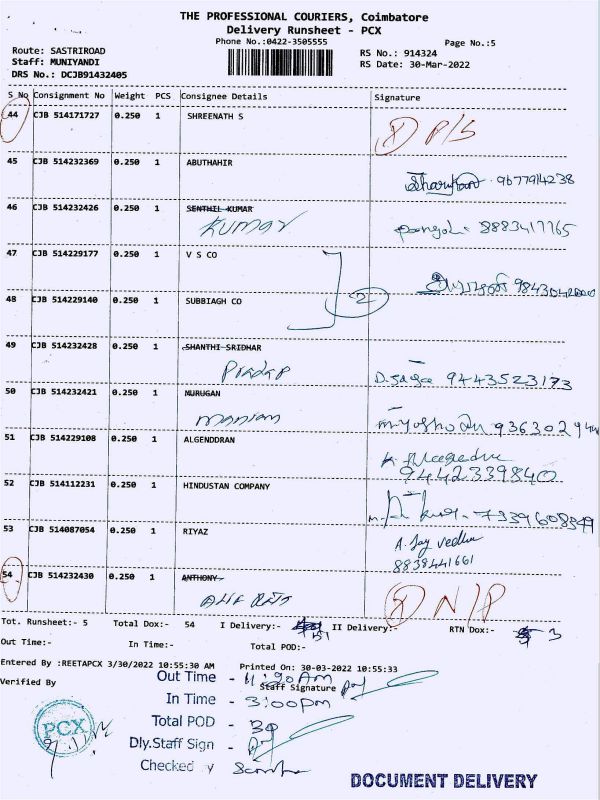 THE PROFESSIONAL COURIERS, Coimbatore
Delivery Runsheet - PCX
Phone No.:0422-3505555
Page No.:5
Route: SASTRIROAD
RS No.: 914324
Staff: MUNIYANDI
RS Date: 30-Mar-2022
DRS No.: DCJB91432405
S No Consignment No Weight PCS Consignee Details Signature
44 CJB 514171727 0.250 1 SHREENATH S
45 CJB 514232369 0.250 1 ABUTHAHIR
9677914238
46 CJB 514232426 0.250 1 SENTHIL KUMAR
KUMAR 8883417765
47 CJB 514229177 0.250 1 V S CO
2
48 CJB 514229140 0.250 1 SUBBIAGH CO
49 CJB 514232428 0.250 1 SHANTHI SRIDHAR
9443523173
50 CJB 514232421 0.250 1 MURUGAN
51 CJB 514229108 0.250 1 ALGENDDRAN
9442339840
52 CJB 514112231 0.250 1 HINDUSTAN COMPANY
53 CJB 514087054 0.250 1 RIYAZ
A. Jay
8838441661
54 CJB 514232430 0.250 1 ANTHONY
N/P
Tot. Runsheet:- 5 Total Dox:- 54 I Delivery:- II Delivery:- RTN Dox:- 3
Out Time:- In Time:- Total POD:-
Entered By :REETAPCX 3/30/2022 10:55:30 AM Printed On: 30-03-2022 10:55:33
Verified By
Out Time - 11:20 Am
Staff Signature
In Time - 3:00pm
Total POD -
Dly.Staff Sign -
Checked
PCX
DOCUMENT DELIVERY